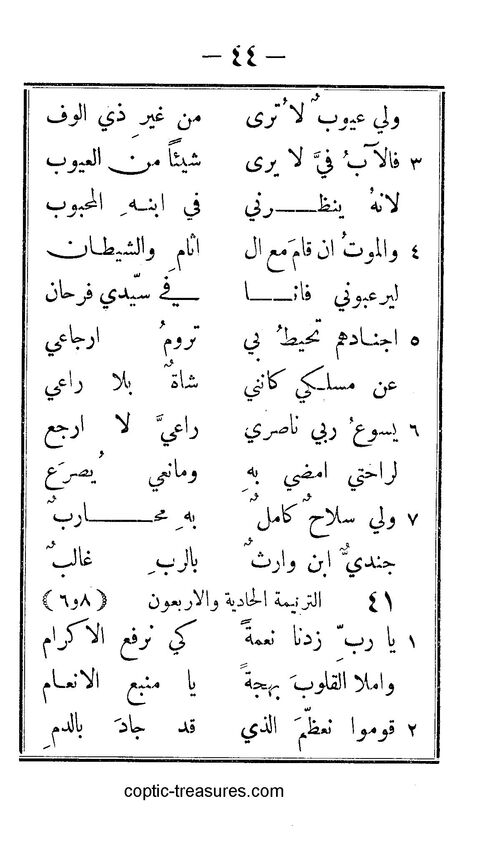 — ٤٤ —
ولي عيوبٌ لا تُرى من غيرِ ذي الوف
٣ فالآبُ فيَّ لا يرى شيئاً من العيوب
لانهُ ينظرني في ابنهِ المحبوب
٤ والموتُ ان قامَ مع ال اثامِ والشيطان
ليرعبوني فانا في سيّدي فرحان
٥ اجنادهم تحيطُ بي ترومُ ارجاعي
عن مسلكي كانني شاةٌ بلا راعي
٦ يسوعُ ربي ناصري راعيَّ لا ارجع
لراحتي امضي بهِ ومانعي يُصرَع
٧ ولي سلاحٌ كاملٌ بهِ محاربٌ
جنديٌّ ابن وارثٌ بالربِ غالبٌ
٤١ الترنيمة الحادية والاربعون (٨و٦)
١ يا ربِّ زدنا نعمةً كي نرفع الاكرام
واملا القلوبَ بهجةً يا منبع الانعام
٢ قوموا نعظّمَ الذي قد جادَ بالدمِ
coptic-treasures.com